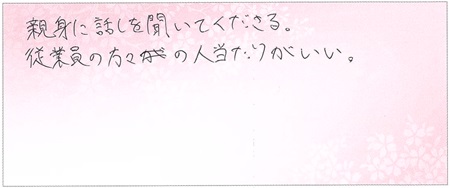 親身に話しを聞いてくださる。
従業員の方々の人当たりがいい。